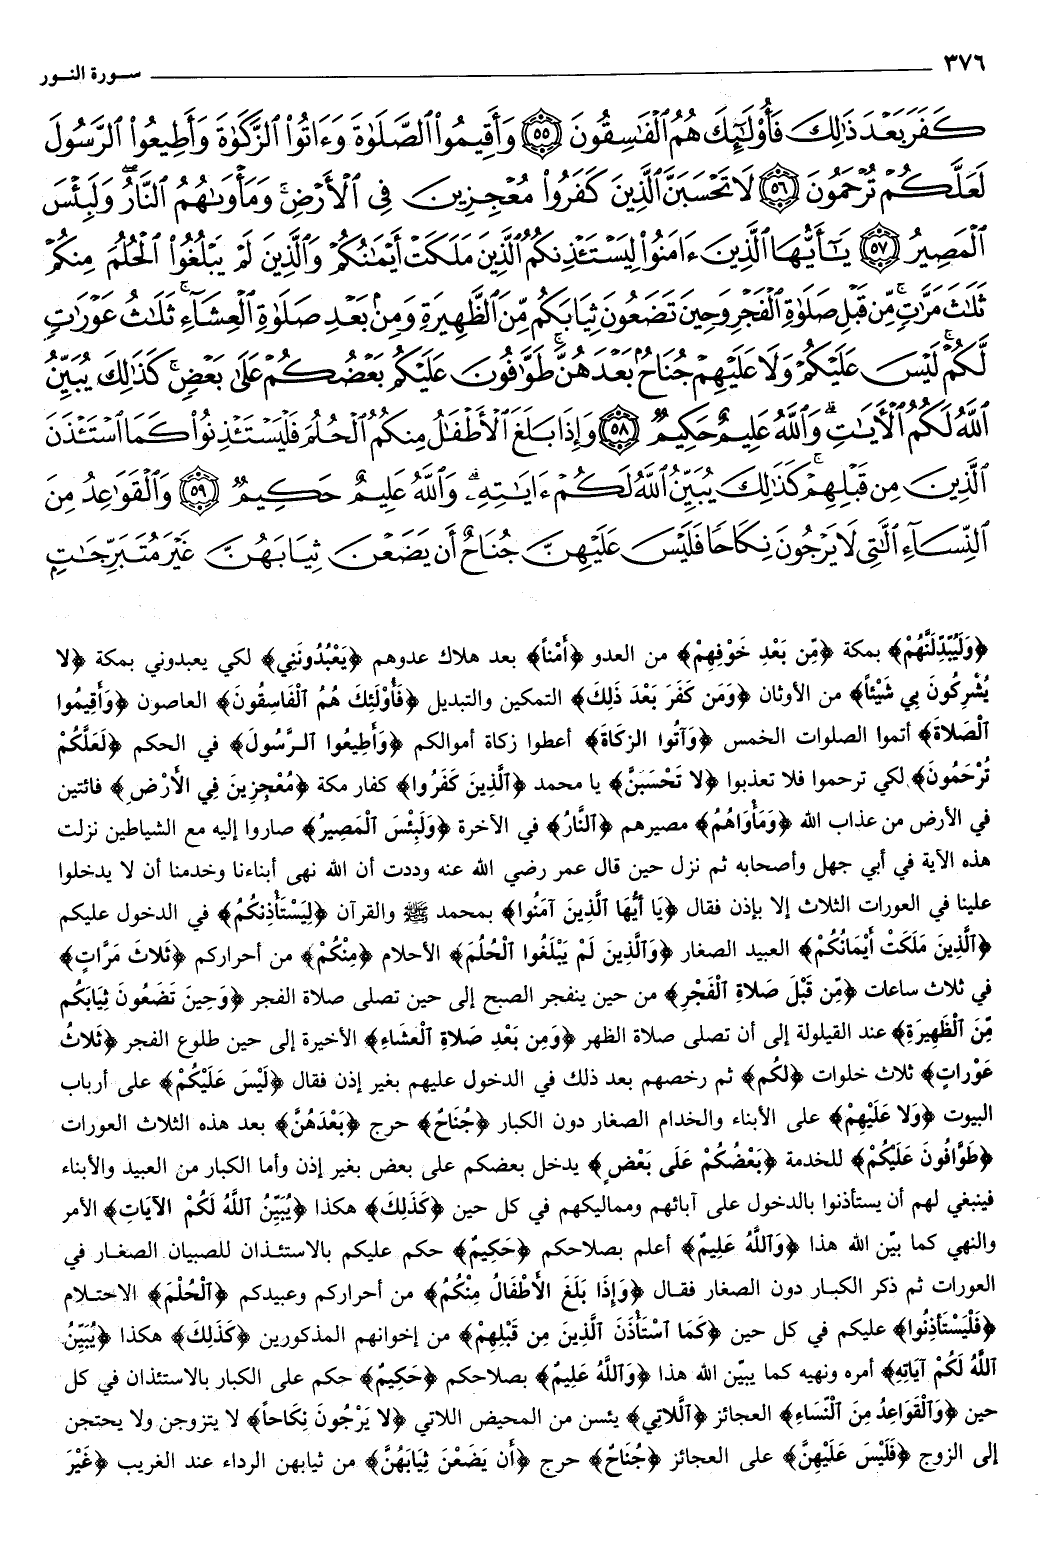 ٣٧٦ سورة النور
كَفَرَ بَعْدَ ذَٰلِكَ فَأُو۟لَٰٓئِكَ هُمُ ٱلْفَٰسِقُونَ ٥٥ وَأَقِيمُوا۟ ٱلصَّلَوٰةَ وَءَاتُوا۟ ٱلزَّكَوٰةَ وَأَطِيعُوا۟ ٱلرَّسُولَ
لَعَلَّكُمْ تُرْحَمُونَ ٥٦ لَا تَحْسَبَنَّ ٱلَّذِينَ كَفَرُوا۟ مُعْجِزِينَ فِى ٱلْأَرْضِ ۚ وَمَأْوَىٰهُمُ ٱلنَّارُ ۖ وَلَبِئْسَ
ٱلْمَصِيرُ ٥٧ يَٰٓأَيُّهَا ٱلَّذِينَ ءَامَنُوا۟ لِيَسْتَـْٔذِنكُمُ ٱلَّذِينَ مَلَكَتْ أَيْمَٰنُكُمْ وَٱلَّذِينَ لَمْ يَبْلُغُوا۟ ٱلْحُلُمَ مِنكُمْ
ثَلَٰثَ مَرَّٰتٍ ۚ مِّن قَبْلِ صَلَوٰةِ ٱلْفَجْرِ وَحِينَ تَضَعُونَ ثِيَابَكُم مِّنَ ٱلظَّهِيرَةِ وَمِنۢ بَعْدِ صَلَوٰةِ ٱلْعِشَآءِ ۚ ثَلَٰثُ عَوْرَٰتٍ
لَّكُمْ ۚ لَيْسَ عَلَيْكُمْ وَلَا عَلَيْهِمْ جُنَاحٌۢ بَعْدَهُنَّ ۚ طَوَّٰفُونَ عَلَيْكُم بَعْضُكُمْ عَلَىٰ بَعْضٍ ۚ كَذَٰلِكَ يُبَيِّنُ
ٱللَّهُ لَكُمُ ٱلْأَيَٰتِ ۗ وَٱللَّهُ عَلِيمٌ حَكِيمٌ ٥٨ وَإِذَا بَلَغَ ٱلْأَطْفَٰلُ مِنكُمُ ٱلْحُلُمَ فَلْيَسْتَـْٔذِنُوا۟ كَمَا ٱسْتَـْٔذَنَ
ٱلَّذِينَ مِن قَبْلِهِمْ ۚ كَذَٰلِكَ يُبَيِّنُ ٱللَّهُ لَكُمْ ءَايَٰتِهِۦ ۗ وَٱللَّهُ عَلِيمٌ حَكِيمٌ ٥٩ وَٱلْقَوَٰعِدُ مِنَ
ٱلنِّسَآءِ ٱلَّٰتِى لَا يَرْجُونَ نِكَاحًا فَلَيْسَ عَلَيْهِنَّ جُنَاحٌ أَن يَضَعْنَ ثِيَابَهُنَّ غَيْرَ مُتَبَرِّجَٰتٍۭ
﴿وَلَيُبَدِّلَنَّهُمْ﴾ بمكة ﴿مِّن بَعْدِ خَوْفِهِمْ﴾ من العدو ﴿أَمْناً﴾ بعد هلاك عدوهم ﴿يَعْبُدُونَنِي﴾ لكي يعبدوني بمكة ﴿لا
يُشْرِكُونَ بِي شَيْئاً﴾ من الأوثان ﴿وَمَن كَفَرَ بَعْدَ ذَلِكَ﴾ التمكين والتبديل ﴿فَأُوْلَئِكَ هُمُ ٱلْفَاسِقُونَ﴾ العاصون ﴿وَأَقِيمُوا
ٱلْصَلاةَ﴾ أتموا الصلوات الخمس ﴿وَآتُوا الزكَاةَ﴾ أعطوا زكاة أموالكم ﴿وَأَطِيعُوا الرَّسُولَ﴾ في الحكم ﴿لَعَلَّكُمْ
تُرْحَمُونَ﴾ لكي ترحموا فلا تعذبوا ﴿لا تَحْسَبَنَّ﴾ يا محمد ﴿ٱلَّذِينَ كَفَرُوا﴾ كفار مكة ﴿مُعْجِزِينَ فِي الأَرْضِ﴾ فائتين
في الأرض من عذاب الله ﴿وَمَأْوَاهُمُ﴾ مصيرهم ﴿ٱلنَّارُ﴾ في الآخرة ﴿وَلَبِئْسَ ٱلْمَصِيرُ﴾ صاروا إليه مع الشياطين نزلت
هذه الآية في أبي جهل وأصحابه ثم نزل حين قال عمر رضي الله عنه وددت أن الله نهى أبناءنا وخدمنا أن لا يدخلوا
علينا في العورات الثلاث إلا بإذن فقال ﴿يَا أَيُّهَا ٱلَّذِينَ آمَنُوا﴾ بمحمد ﷺ والقرآن ﴿لِيَسْتَأْذِنكُمُ﴾ في الدخول عليكم
﴿ٱلَّذِينَ مَلَكَتْ أَيْمَانُكُمْ﴾ العبيد الصغار ﴿وَٱلَّذِينَ لَمْ يَبْلُغُوا ٱلْحُلُمَ﴾ الأحلام ﴿مِنْكُمْ﴾ من أحراركم ﴿ثَلاثَ مَرَّاتٍ﴾
في ثلاث ساعات ﴿مِّن قَبْلَ صَلاةِ ٱلْفَجْرِ﴾ من حين ينفجر الصبح إلى حين تصلى صلاة الفجر ﴿وَحِينَ تَضَعُونَ ثِيَابَكُم
مِّنَ ٱلظَّهِيرَةِ﴾ عند القيلولة إلى أن تصلى صلاة الظهر ﴿وَمِن بَعْدِ صَلاةِ ٱلْعشَاءِ﴾ الأخيرة إلى حين طلوع الفجر ﴿ثَلاثُ
عَوْرَاتٍ﴾ ثلاث خلوات ﴿لكُم﴾ ثم رخصهم بعد ذلك في الدخول عليهم بغير إذن فقال ﴿لَيْسَ عَلَيْكُمْ﴾ على أرباب
البيوت ﴿وَلا عَلَيْهِمْ﴾ على الأبناء والخدام الصغار دون الكبار ﴿جُنَاحٌ﴾ حرج ﴿بَعْدَهُنَّ﴾ بعد هذه الثلاث العورات
﴿طَوَّافُونَ عَلَيْكُمْ﴾ للخدمة ﴿بَعْضُكُمْ عَلَى بَعْضٍ﴾ يدخل بعضكم على بعض بغير إذن وأما الكبار من العبيد والأبناء
فينبغي لهم أن يستأذنوا بالدخول على آبائهم ومماليكهم في كل حين ﴿كَذَلِكَ﴾ هكذا ﴿يُبَيِّنُ اللَّهُ لَكُمْ الآيَاتِ﴾ الأمر
والنهي كما بيّن الله هذا ﴿وَٱللَّهُ عَلِيمٌ﴾ أعلم بصلاحكم ﴿حَكِيمٌ﴾ حكم عليكم بالاستئذان للصبيان الصغار في
العورات ثم ذكر الكبار دون الصغار فقال ﴿وَإِذَا بَلَغَ الأَطْفَالُ مِنْكُمُ﴾ من أحراركم وعبيدكم ﴿ٱلْحُلْمَ﴾ الاحتلام
﴿فَلْيَسْتَأْذِنُوا﴾ عليكم في كل حين ﴿كَمَا ٱسْتَأْذَنَ ٱلَّذِينَ مِن قَبْلِهِمْ﴾ من إخوانهم المذكورين ﴿كَذَلِكَ﴾ هكذا ﴿يُبَيِّنُ
ٱللَّهُ لَكُمْ آيَاتِهِ﴾ أمره ونهيه كما يبيّن الله هذا ﴿وَٱللَّهُ عَلِيمٌ﴾ بصلاحكم ﴿حَكِيمٌ﴾ حكم على الكبار بالاستئذان في كل
حين ﴿وَٱلْقَوَاعِدُ مِنَ ٱلْنِّسَاءِ﴾ العجائز ﴿ٱللاتِي﴾ يئسن من المحيض اللاتي ﴿لا يَرْجُونَ نِكَاحاً﴾ لا يتزوجن ولا يحتجن
إلى الزوج ﴿فَلَيْسَ عَلَيْهِنَّ﴾ على العجائز ﴿جُنَاحٌ﴾ حرج ﴿أَن يَضَعْنَ ثِيَابَهُنَّ﴾ من ثيابهن الرداء عند الغريب ﴿غَيْرَ